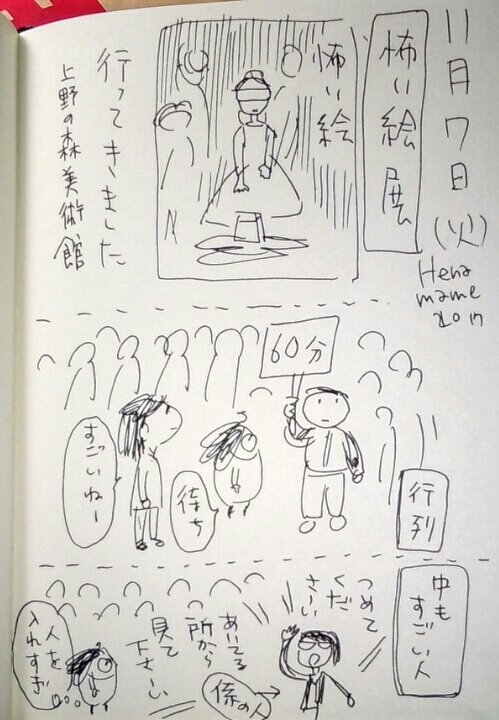 11月7日(火)
怖い絵展
怖い絵
行ってきました
上野の森美術館
Hena
mame
2017
60分
行列
待ち
すごいねー
中も
すごい人
つめて
くだ
さい
係の人
あいてる
所から
見て
下さーい
人を
入れすぎ